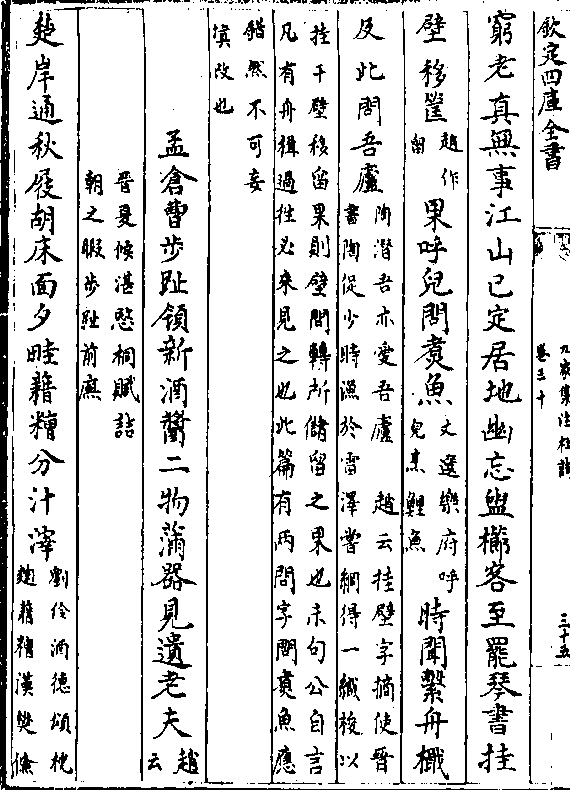 欽定四庫全書
九家集注杜詩
卷三十
三十五
窮老真無事江山已定居地幽忘盥櫛客至罷琴書挂
壁移筐
趙作
留
果呼兒問煮魚
文選樂府呼
兒烹鯉魚
時聞繫舟檝
及此問吾廬
陶潛吾亦愛吾廬 趙云挂壁字摘使晉
書陶侃少時漁於雷澤嘗網得一織梭以
挂于壁移留果則壁間轉所儲留之果也末句公自言
凡有舟楫過往必來見之也此篇有兩問字問煮魚應
錯然不可妄
填改也
孟倉曹步趾領新酒醬二物滿器見遺老夫
趙
云
晉夏侯湛愍桐賦詰
朝之暇步趾前廡
楚岸通秋屐胡床面夕畦藉糟分汁滓
劉伶酒德頌枕
麯藉糟漢樊鯈